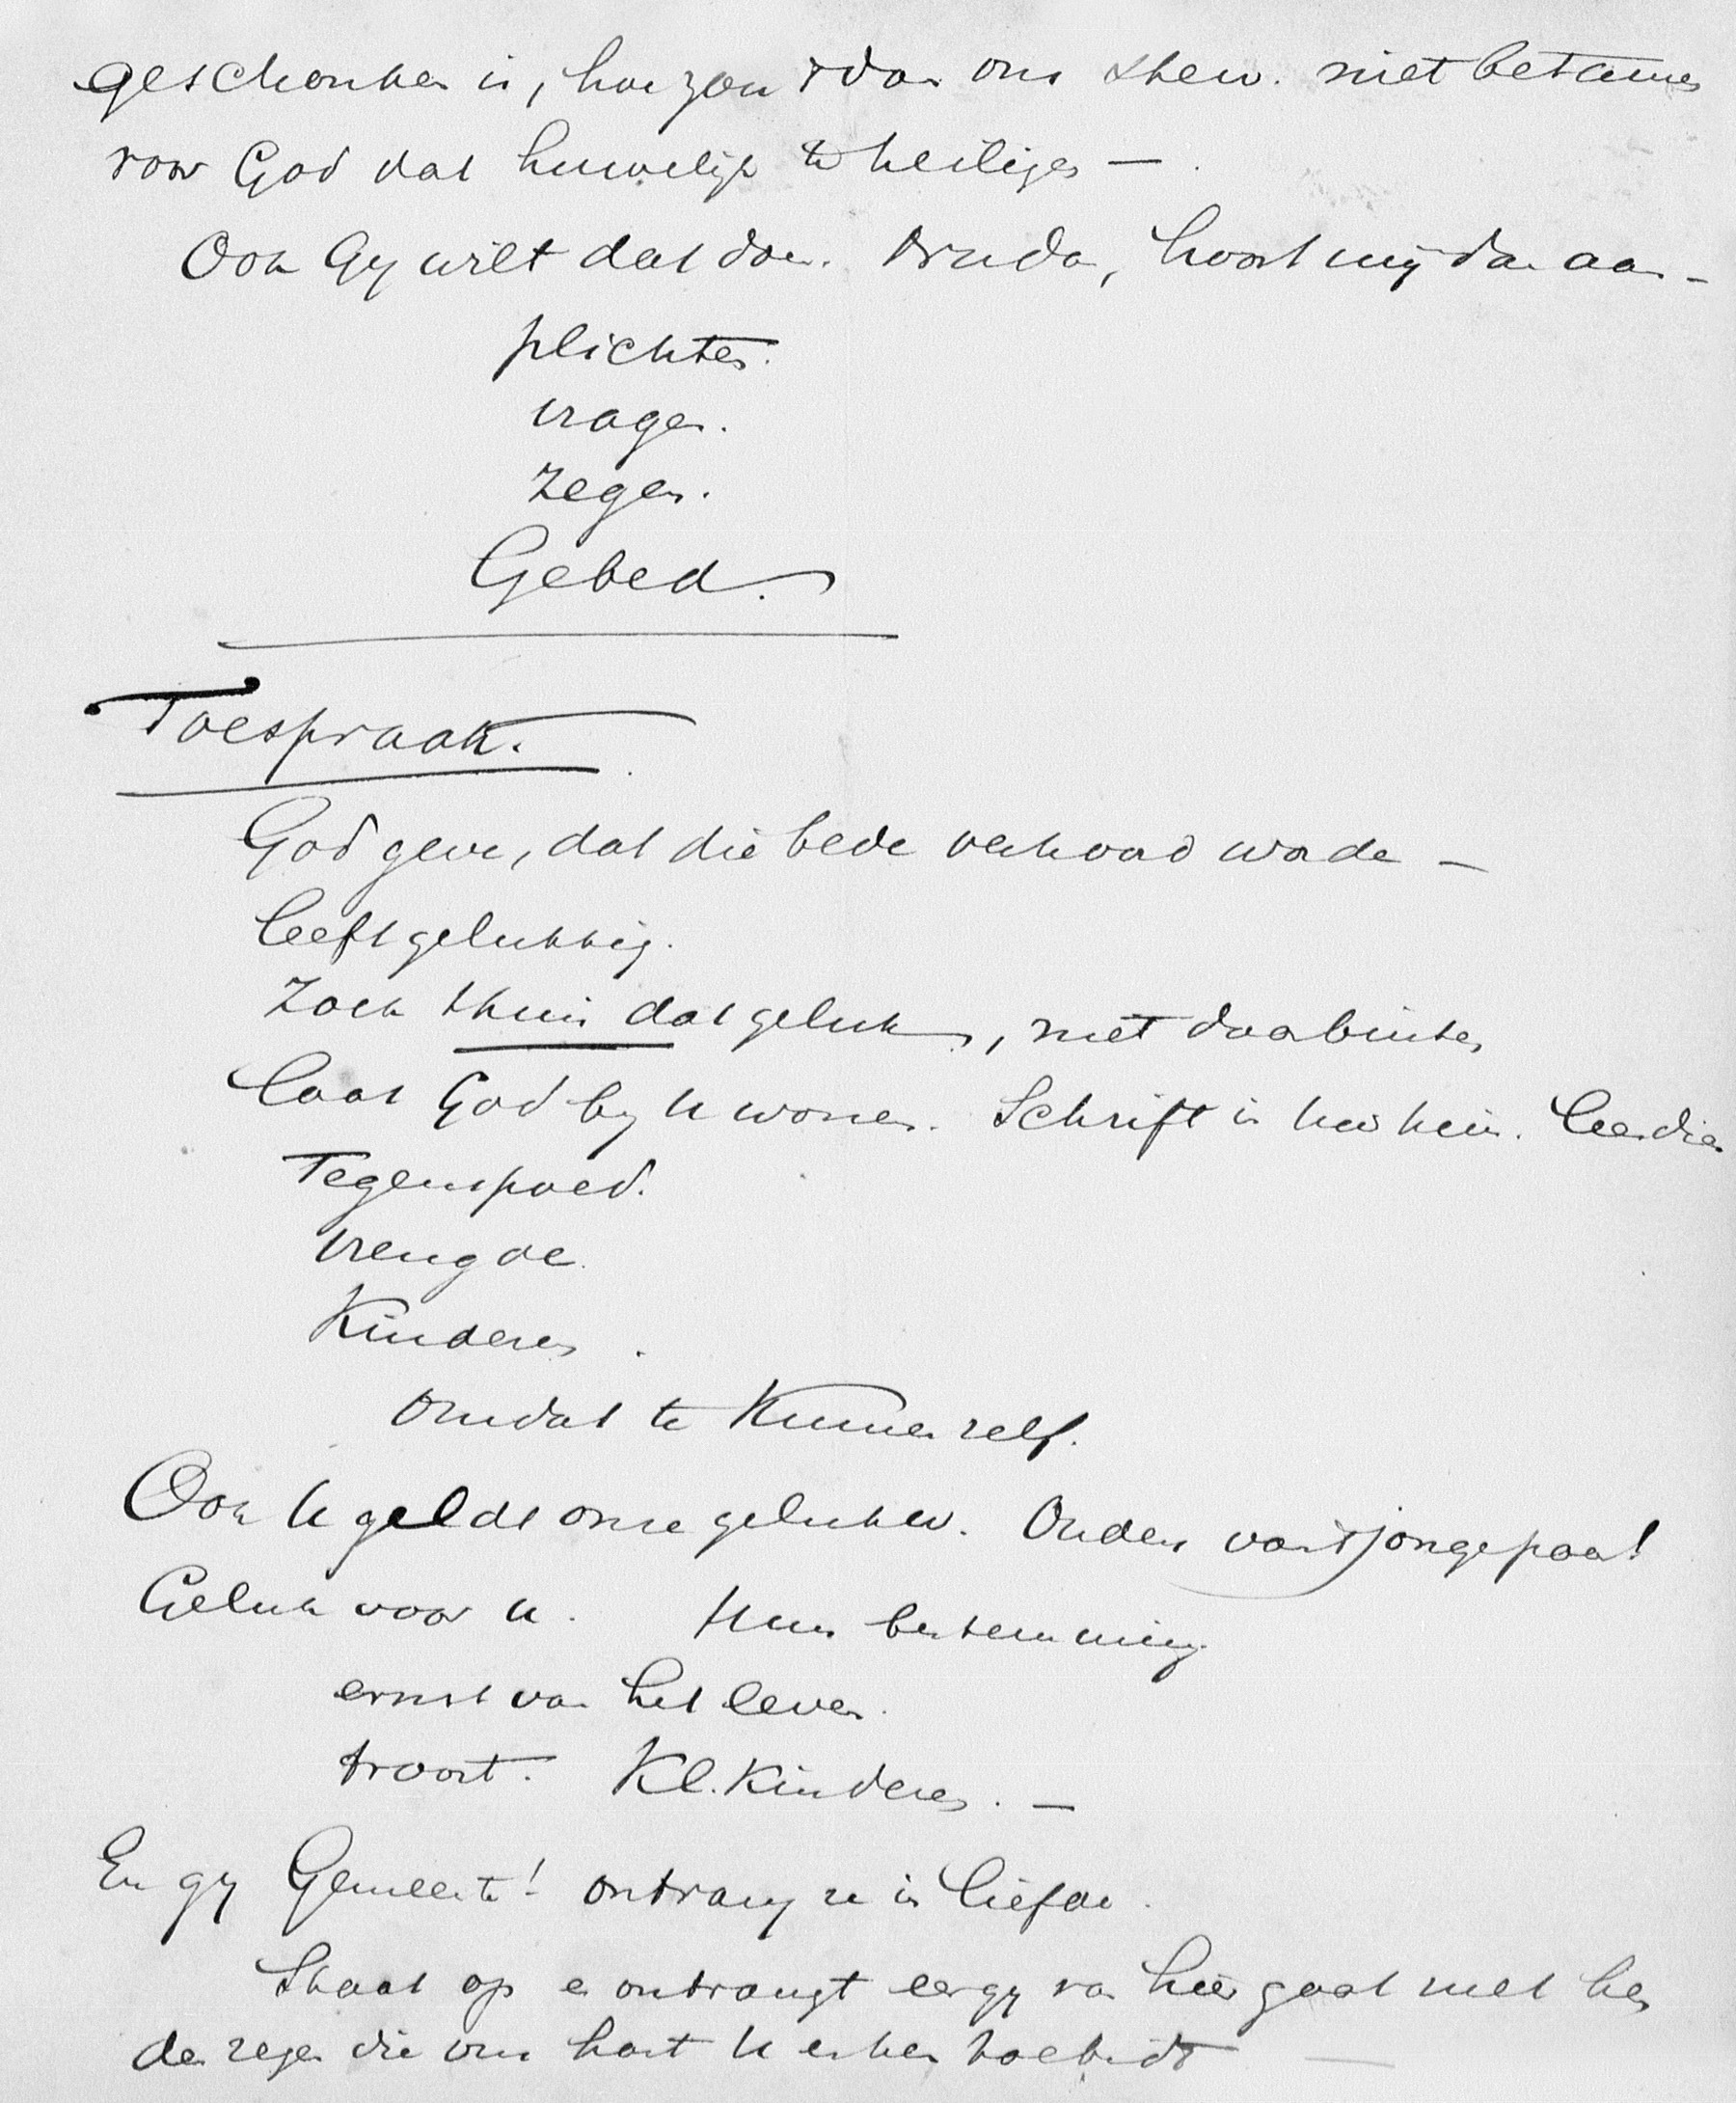 geschonken is, hoe zou 't dan ons niet betamen
voor God dat huwelijk te heiligen —
Ook Gy wilt dat doen. hoort mij dan aan —
plichten.
vragen.
Zegen.
Gebed.
Toespraak.
God geve, dat die bede verhoord worde —
leeft gelukkig.
Zoek thuis dat geluk, niet daarbuiten
laat God by U wonen. Schrift in huis.
Tegenspoed.
Vreugde.
Kinderen.
Om dat te kunnen zelf.
Ook U geldt onze gelukw. Ouders van 't jonge paar!
Geluk voor U. Hun bestemming
ernst van het leven.
troost. Kl. Kinderen. —
En gy Gemeente! ontvang ze in liefde.
Staat op en ontvangt eer gy van hier gaat met hen
den zegen die ons hart U en hen toebidt —